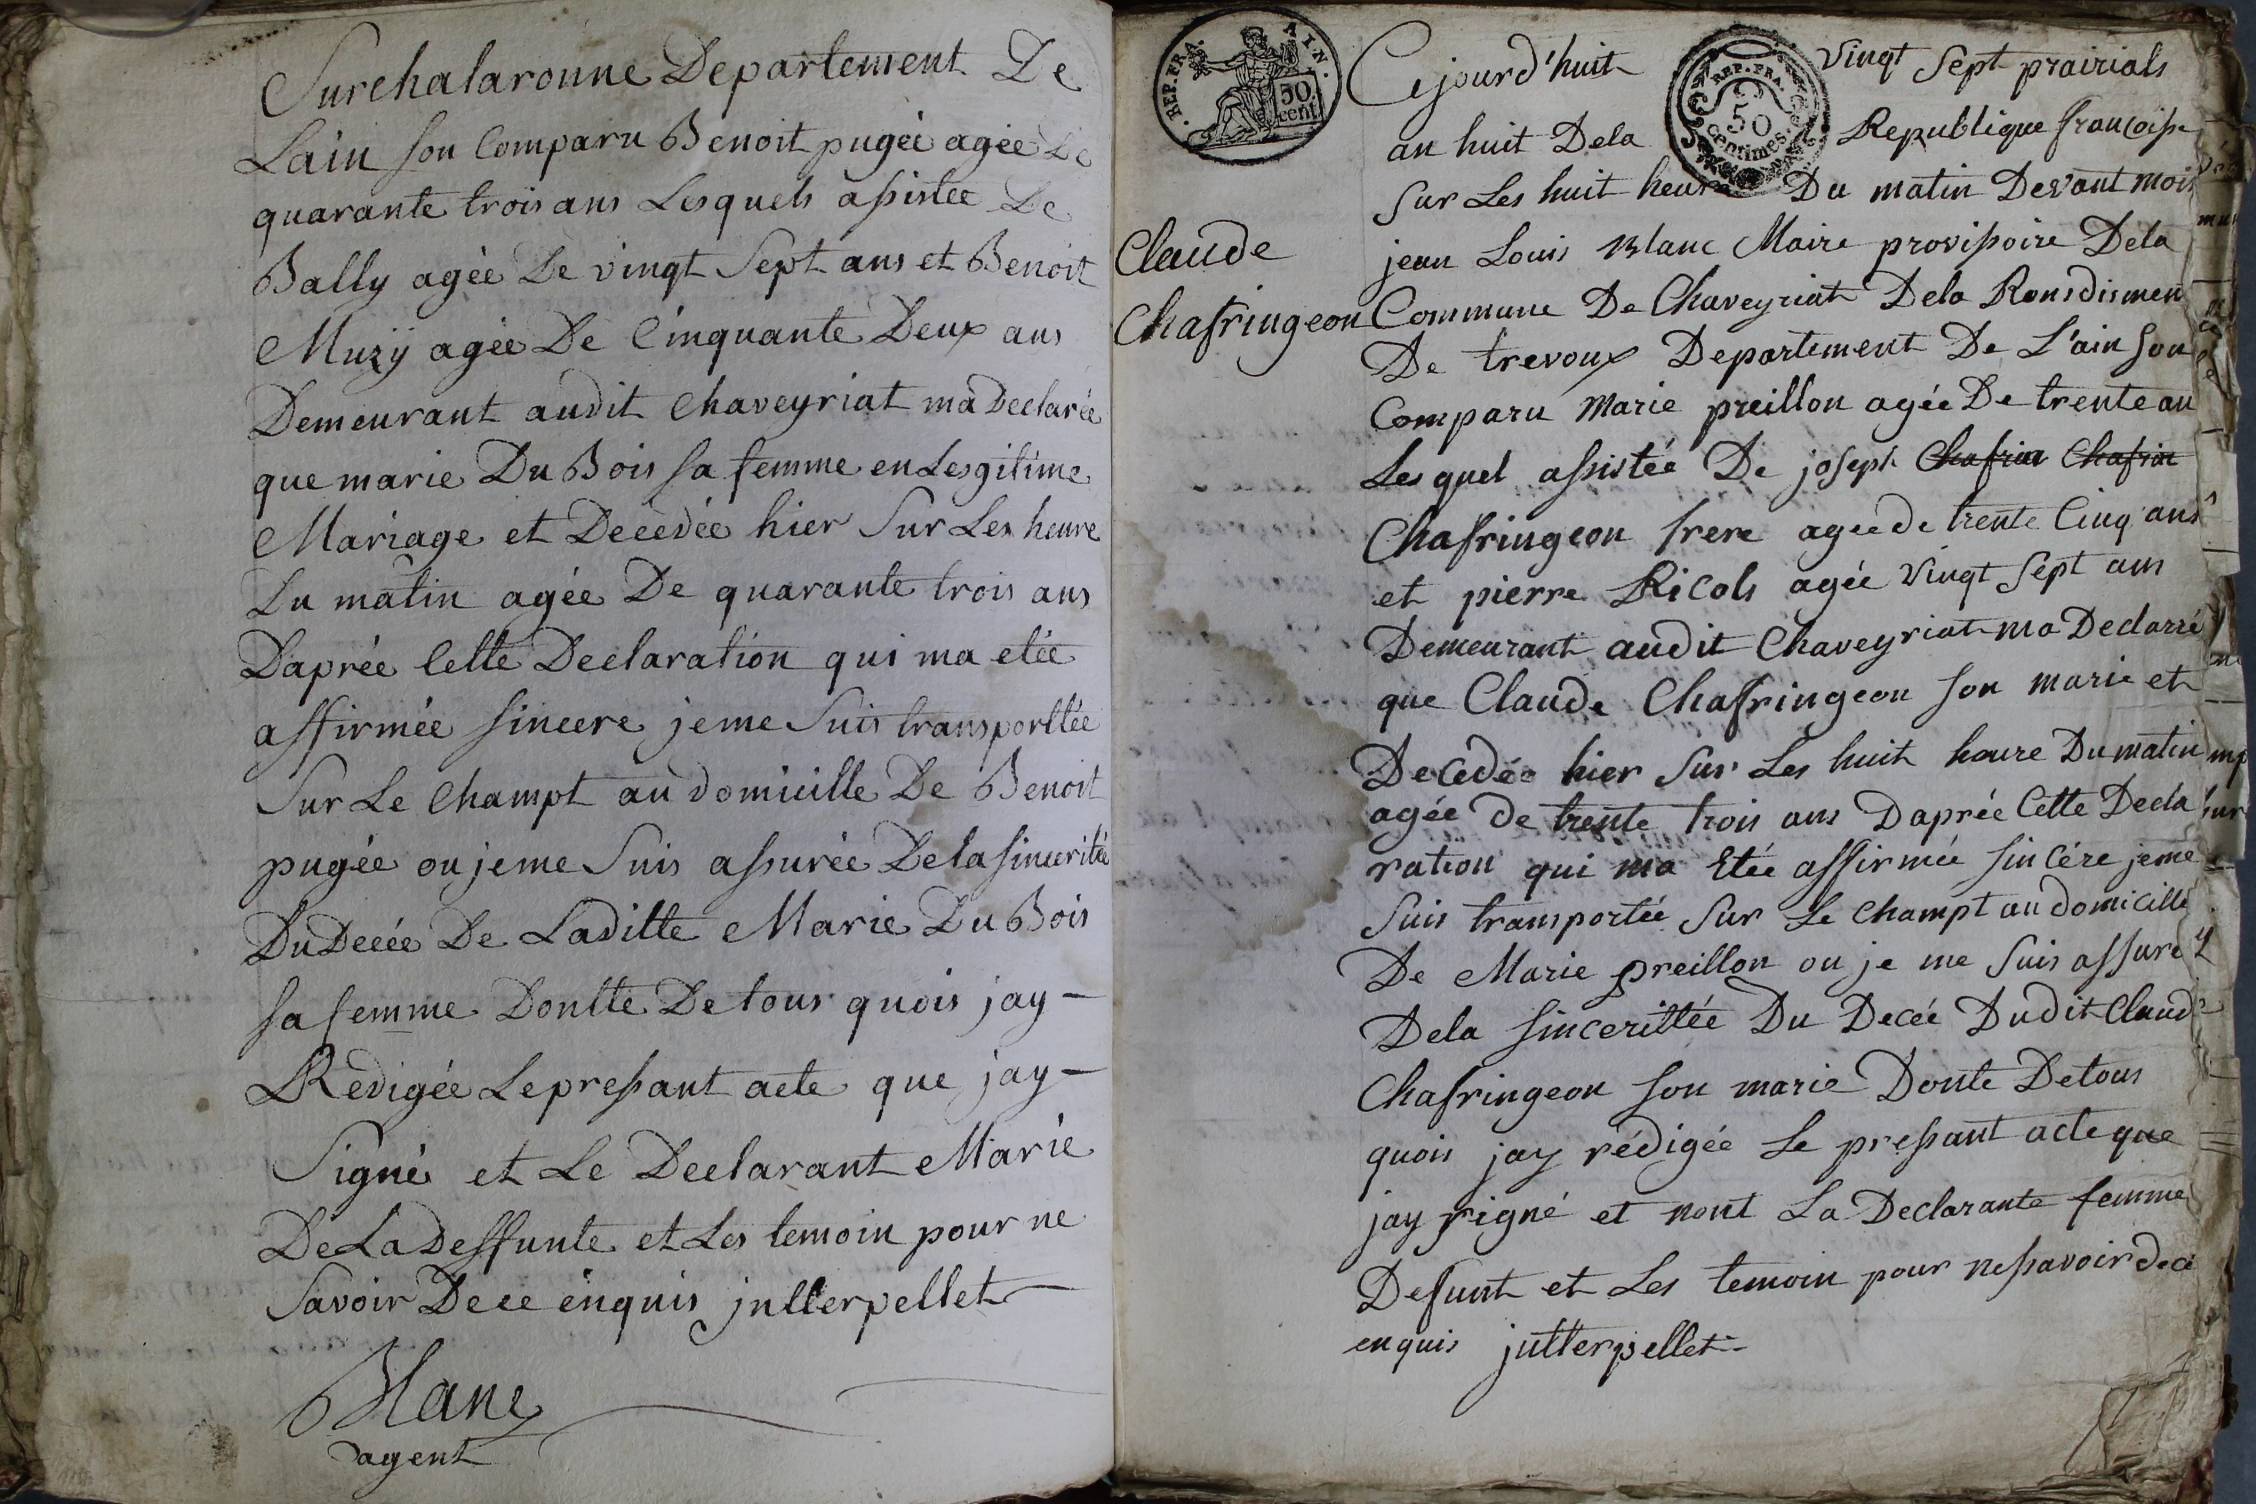 Surchalaronne Departement De
Lain son Comparu Benoit pugée agée De
quarante trois ans Lesquels asistée De
Bally agée De vingt Sept ans et Benoit
Muzÿ agée De Cinquante Deux ans
Demeurant audit Chaveyriat ma Declarée
que marie Du Bois sa femme en Lesgitime
Mariage et Decedée hier Sur Les heure
Du matin agée De quarante trois ans
Daprée Cette Declaration qui ma etée
affirmée sincere je me Suis transporttée
Sur Le Champt au domicille De Benoit
pugée ou je me Suis assurée De la sinceritée
Du Decée De Laditte Marie Du Bois
sa femme Dontte De tous quois jay –
Redigée Le pressant acte que jay –
Signé et Le Declarant Marie
De La Deffunte et Les temoin pour ne
Savoir De ce enquis jntterpellet
Blanc
agent
REP. FRA. AIN.
50 cent
REP. FRA.
50
Centimes
Cejourd'huit vingt Sept prairials
an huit Dela Republique francoise
Sur Les huit heure Du matin Devant mois
jean Louis Blanc Maire provisoire Dela
Claude
Chafringeon
Commune De Chaveyriat Dela Ronsdismen
De trevoux Departement De L'ain son
Comparu Marie preillon agée De trente an
Les quel assistée De joseph Chafrin Chafrin
Chafringeon frere agee de trente Cinq ans
et pierre Ricols agée vingt Sept ans
Demeurant audit Chaveyriat ma Declarré
que Claude Chafringeon son marie et
Decedée hier Sur Les huit heure Du matin
agée de trente trois ans Daprée Cette Decla
ration qui ma Etée affirmée sincére je me
Suis transportée Sur Le Champt au domicille
De Marie preillon ou je me Suis assure
Dela sincerittée Du Decée Dudit Claude
Chafringeon son marie Donte De tous
quois jay rédigée Le pressant acte que
jay signé et nont La Declarante femme
Defunt et Les temoin pour ne savoir de ce
enquis jntterpellet